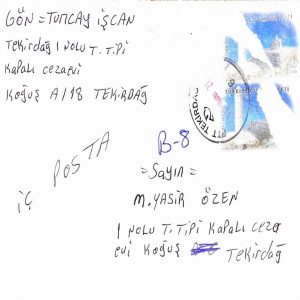 GÖN = TUNCAY İŞCAN
Tekirdağ 1 NOLU T. TİPİ
KAPALI CEZAEVİ
KOĞUŞ A/18 TEKİRDAĞ
PTT TEKİRDAĞ
B-8
İÇ POSTA
= SAYIN =
M. YASİR ÖZEN
1 NOLU T. TİPİ KAPALI CEZA
EVİ KOĞUŞ TEKİRDAĞ